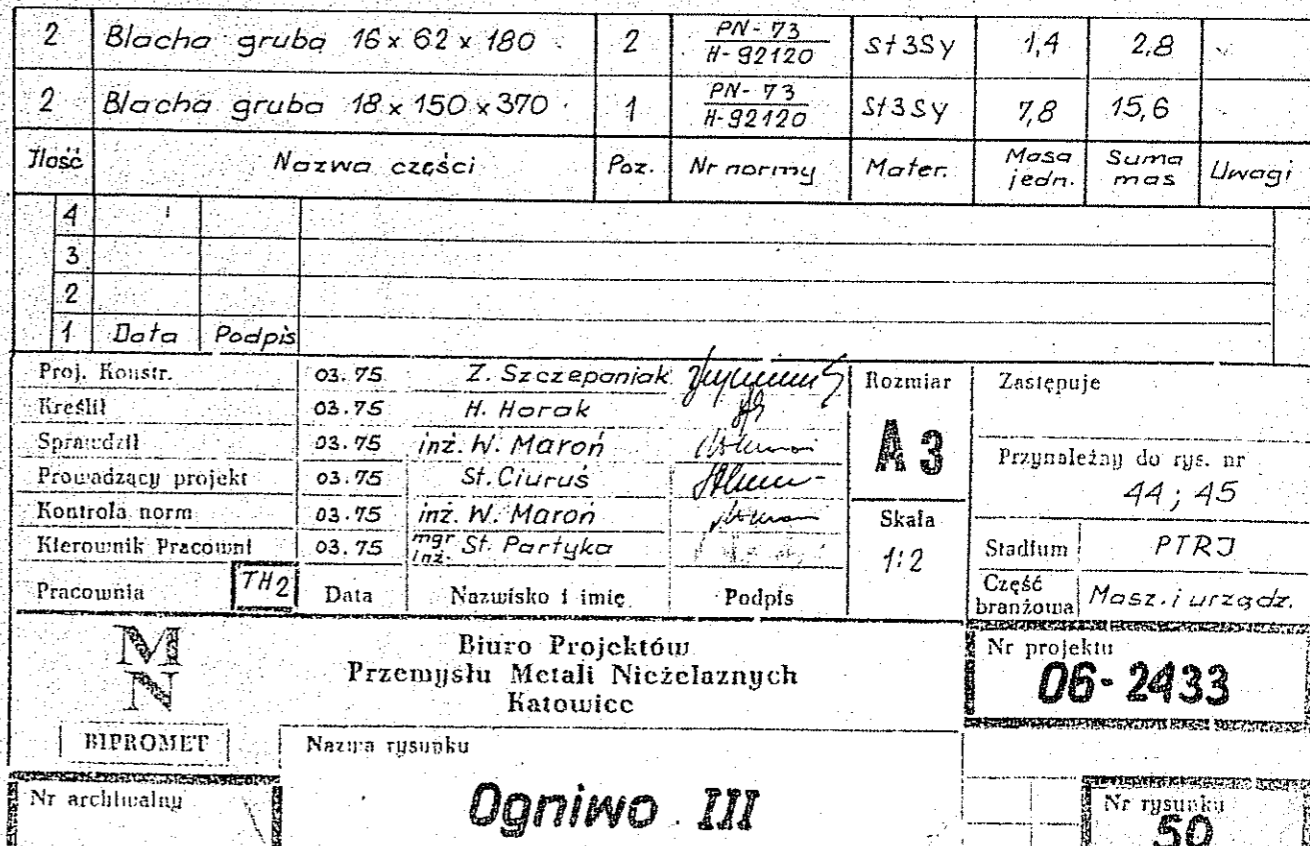 2 Blacha gruba 16 x 62 x 180 2 PN-73 H-92120 St3Sy 1,4 2,8
2 Blacha gruba 18 x 150 x 370 1 PN-73 H-92120 St3Sy 7,8 15,6
Ilość Nazwa części Poz. Nr normy Mater. Masa jedn. Suma mas Uwagi
4
3
2
1 Data Podpis
Proj. Konstr. 03.75 Z. Szczepaniak
Kreślił 03.75 H. Horak
Sprawdził 03.75 inż. W. Maroń
Prowadzący projekt 03.75 St. Ciuruś
Kontrola norm 03.75 inż. W. Maroń
Kierownik Pracowni 03.75 mgr inż. St. Partyka
Pracownia TH2 Data Nazwisko i imię Podpis
Rozmiar
A3
Skala
1:2
Zastępuje
Przynależny do rys. nr
44; 45
Stadium PTRJ
Część branżowa Masz. i urządz.
MN
BIPROMET
Biuro Projektów
Przemysłu Metali Nieżelaznych
Katowice
Nr projektu
06-2433
Nazwa rysunku
Ogniwo III
Nr archiwalny
Nr rysunku
50